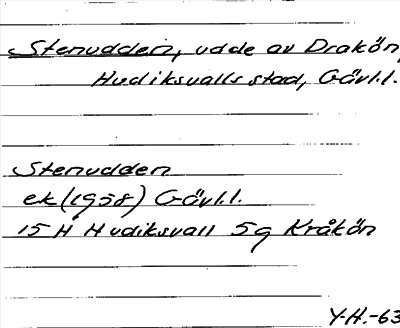 Stenudden, udde av Drakön,
Hudiksvalls stad, Gävl.l.
Stenudden
ek (1958) Gävl.l.
15 H Hudiksvall 5g Kråkön
Y.H.-63